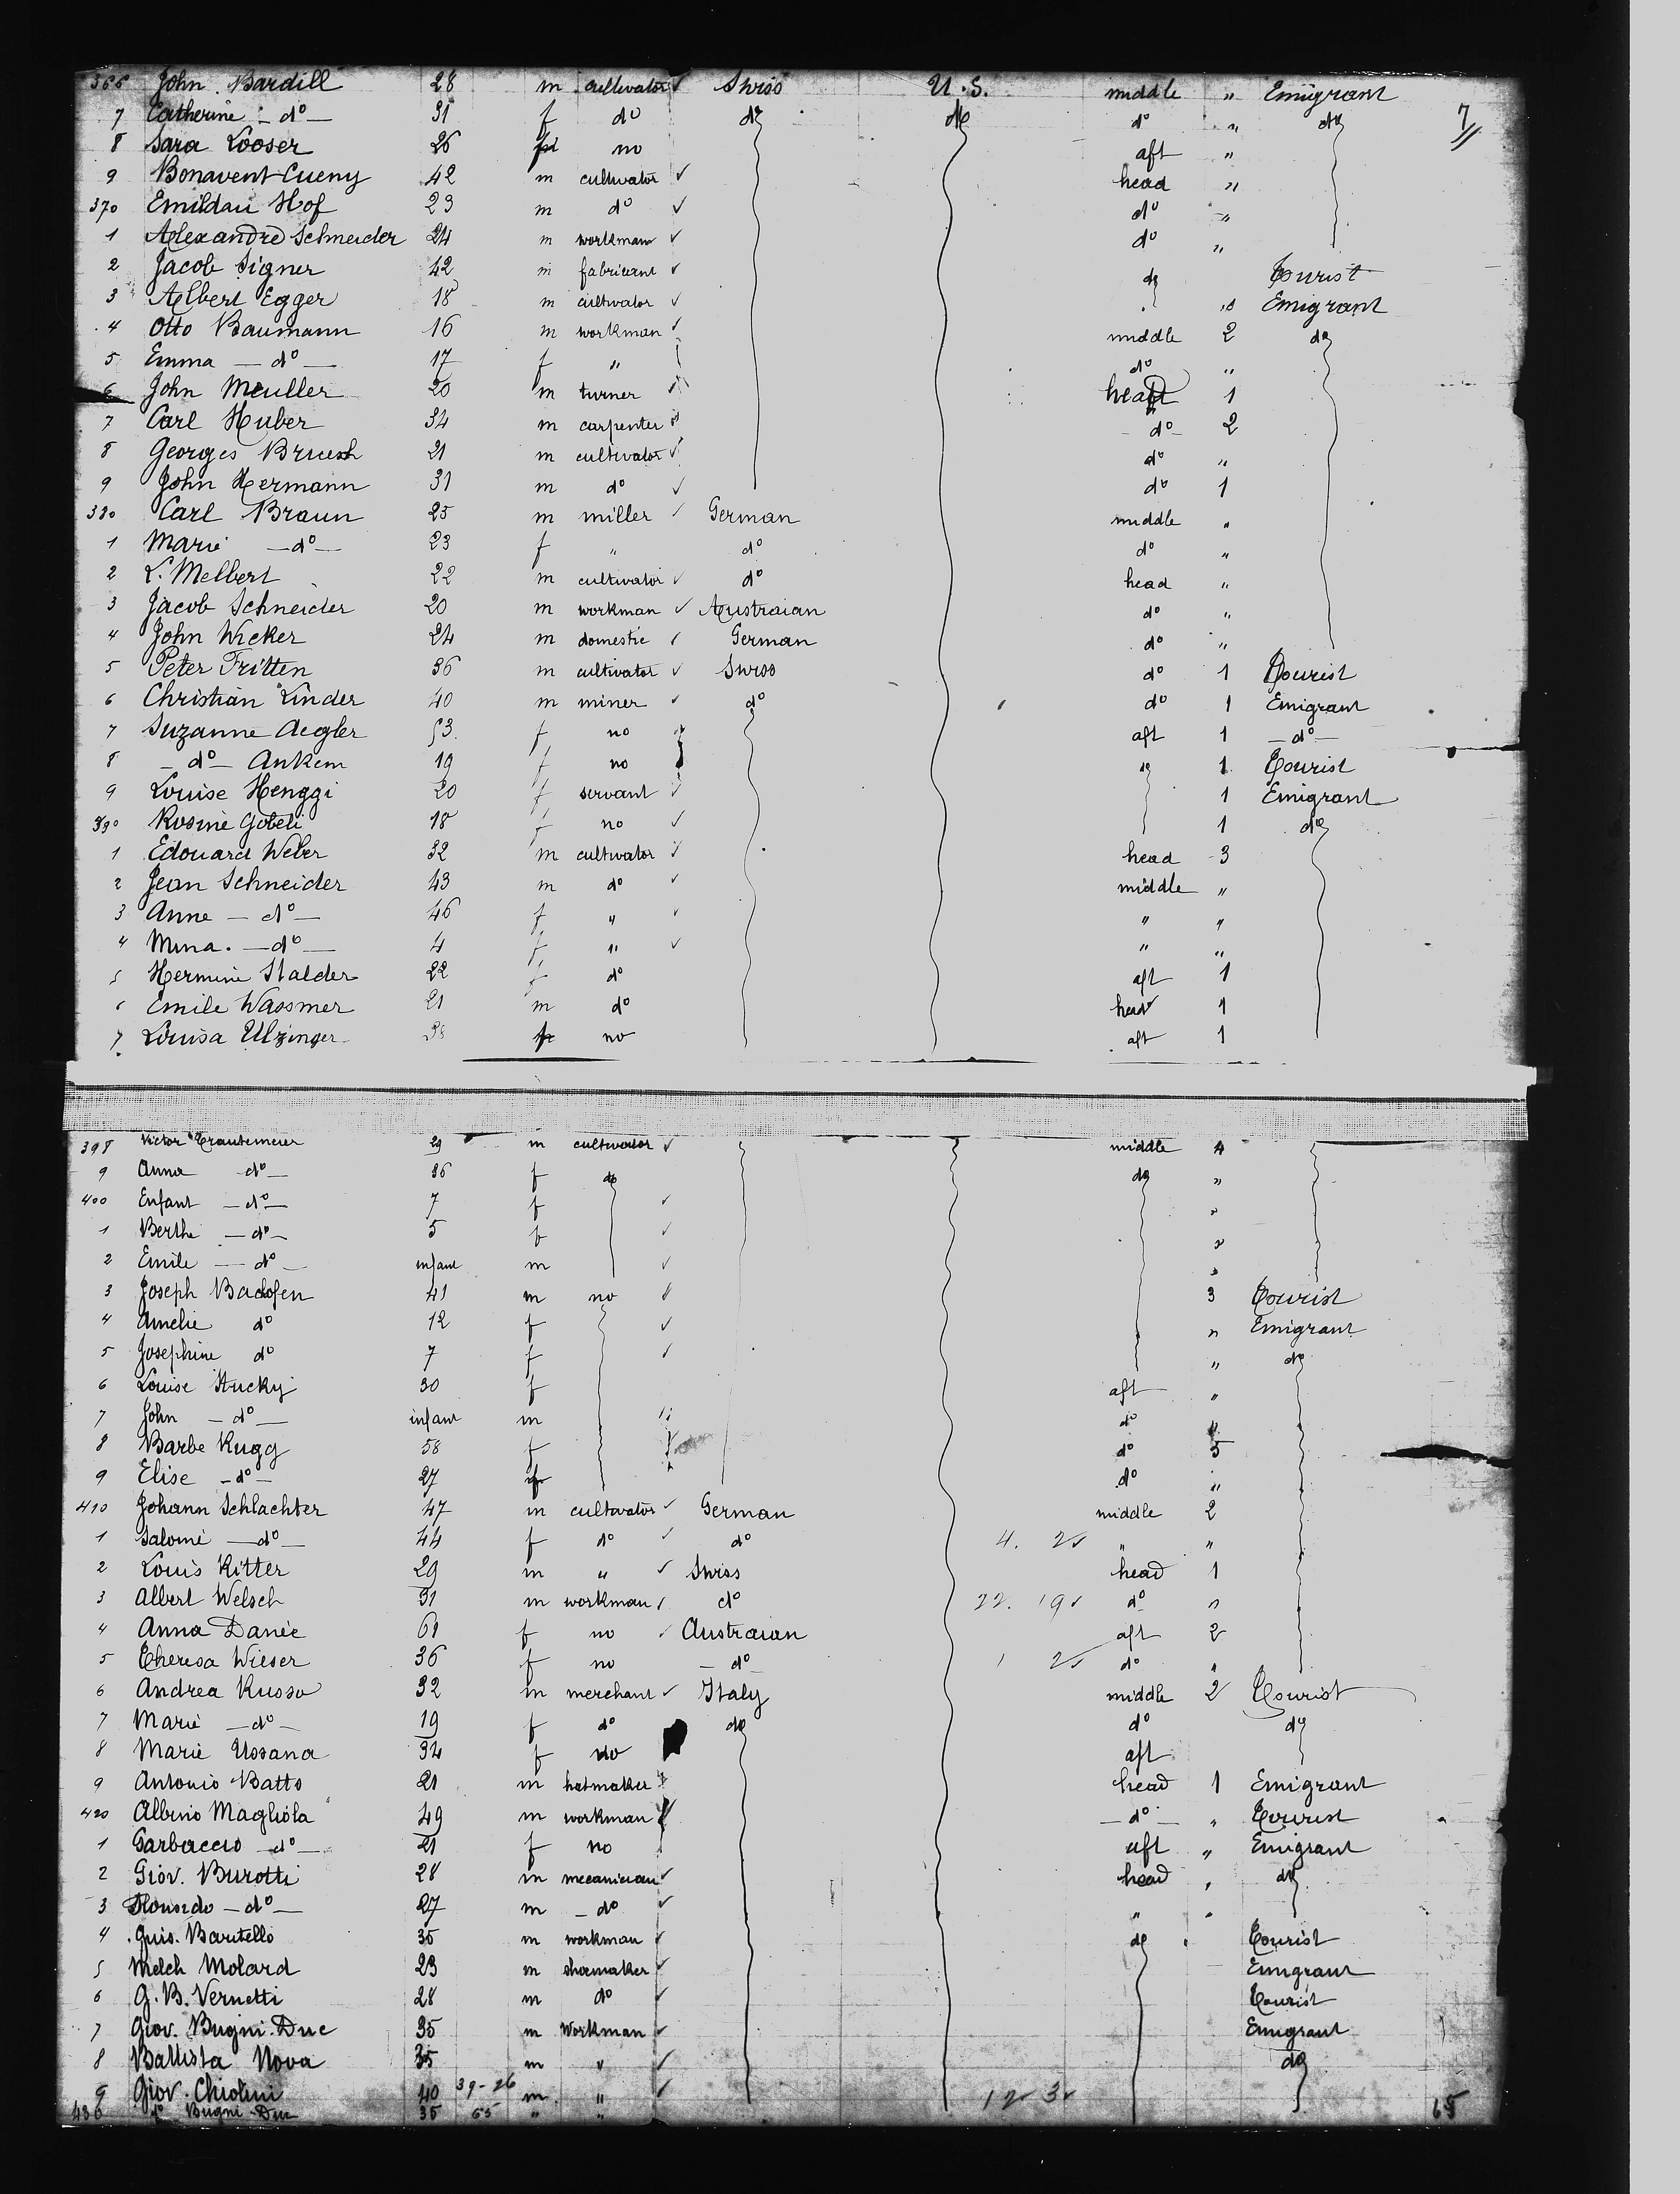 366 John Bardill 28 m cultivator ✓ Swiss U.S. middle " Emigrant
7 Catherine - do - 31 f do do do do " do 7
8 Sara Looser 26 f no aft "
9 Bonavent Cueny 42 m cultivator ✓ head "
370 Emildau Hof 23 m do ✓ do "
1 Alexandre Schneider 24 m workman ✓ do "
2 Jacob Signer 42 m fabricant ✓ do Tourist
3 Albert Egger 18 m cultivator ✓ " Emigrant
4 Otto Baumann 16 m workman ✓ middle 2 do
5 Emma - do - 17 f " do "
6 John Meuller 20 m turner head 1
7 Carl Huber 34 m carpenter do 2
8 Georges Bruesh 21 m cultivator ✓ do "
9 John Hermann 31 m do ✓ do 1
380 Carl Braun 25 m miller ✓ German middle "
1 Marie - do - 23 f " do do "
2 L. Melbert 22 m cultivator ✓ do head "
3 Jacob Schneider 20 m workman ✓ Austraian do "
4 John Wicker 24 m domestic ✓ German do "
5 Peter Fritten 36 m cultivator ✓ Swiss do 1 Tourist
6 Christian Linder 40 m miner ✓ do do 1 Emigrant
7 Suzanne Aegler 53 f no aft 1 - do -
8 - do - Ankem 19 f no do 1 Tourist
9 Louise Henggi 20 f servant ✓ 1 Emigrant
390 Rosine Gobeli 18 f no ✓ 1 do
1 Edouard Weber 32 m cultivator ✓ head 3
2 Jean Schneider 43 m do ✓ middle "
3 Anne - do - 46 f " ✓ " "
4 Mina. - do - 4 f " ✓ " "
5 Hermine Stalder 22 f do aft 1
6 Emile Wassmer 21 m do head 1
7 Louisa Ulzinger 38 f no aft 1
398 Victor Trautemeier 29 m cultivator ✓ middle 4
9 Anna do - 36 f do do "
400 Enfant - do - 7 f ✓ "
1 Berthe - do - 5 f ✓ "
2 Emile - do - infant m ✓ "
3 Joseph Bachofen 41 m no ✓ 3 Tourist
4 Amelie do 12 f ✓ " Emigrant
5 Josephine do 7 f ✓ " do
6 Louise Stucky 30 f aft "
7 John - do - infant m do "
8 Barbe Rugg 58 f do 5
9 Elise - do - 27 f do "
410 Johann Schlachter 47 m cultivator ✓ German middle 2
1 Salomé - do - 44 f do ✓ do 4. 2 " "
2 Louis Ritter 29 m " ✓ Swiss head 1
3 Albert Welsch 31 m workman ✓ do 22. 19 do "
4 Anna Danie 61 f no ✓ Austraian aft 2
5 Theresa Wieser 36 f no - do - 1 2 do "
6 Andrea Russo 32 m merchant ✓ Italy middle 2 Tourist
7 Marie - do - 19 f do do do do
8 Marie Ussana 34 f do aft
9 Antonio Batto 21 m hatmaker head 1 Emigrant
420 Albino Magliola 49 m workman - do - " Tourist
1 Garbaccio - do - 21 f no aft " Emigrant
2 Giov. Burotti 28 m mecanician ✓ head " do
3 - do - 27 m - do ✓ " "
4 Guis. Baritello 35 m workman ✓ do Tourist
5 Melch Molard 23 m shoemaker ✓ Emigrant
6 G. B. Vernetti 28 m do ✓ Tourist
7 Giov. Bugni-Duc 35 m Workman ✓ Emigrant
8 Battista Nova 35 m " ✓ do
9 Giov. Chiolini 40 39-26 m " ✓ 12 3
430 do Bugni-Duc 35 65 " " 65